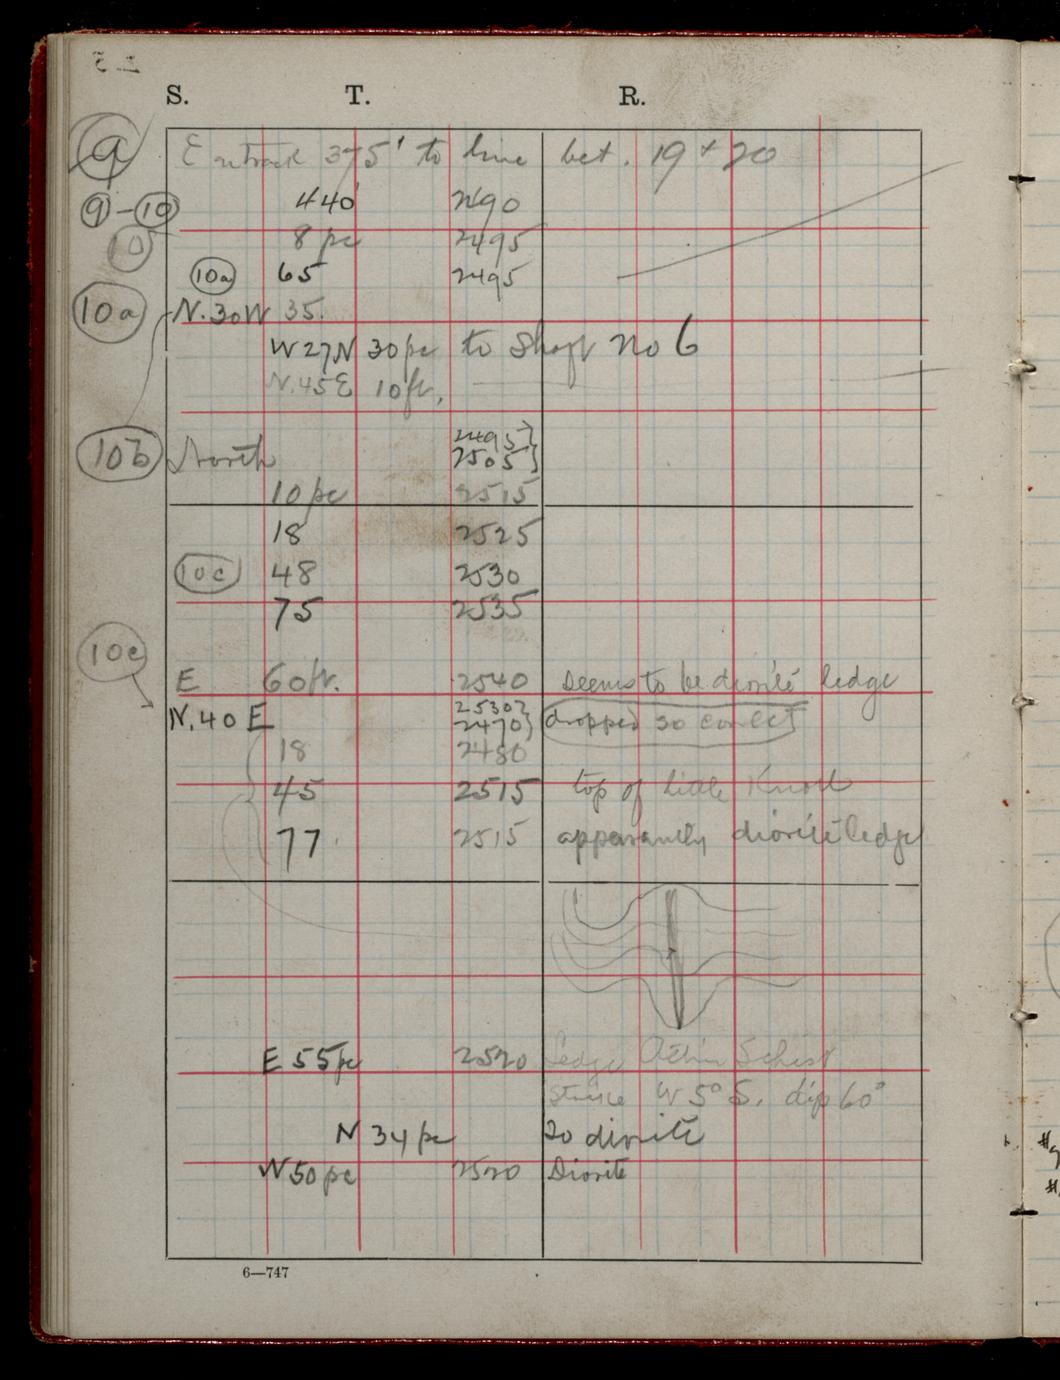 S. T. R.
9 E on track 375' to line bet. 19 + 20
9-10 440 2490
10 8 pc 2495
10a 65 2495
10a N.30W 35.
W27N 30pc to Shaft No 6
N.45E 10ft.
2495}
10b North 2505}
10 pc 2515
18 2525
10c 48 2530
75 2535
10c
E 60ft. 2540 Seems to be diorite ledge
2530}
N.40E 2470} dropped so correct
18 2480
45 2515 top of little Knoll
77 2515 apparantly diorite ledge
E 55pc 2520 Ledge Schist
Strike W 5° S. dip 60°
N 34 pc To diorite
N 50 pc 2520 Diorite
6—747